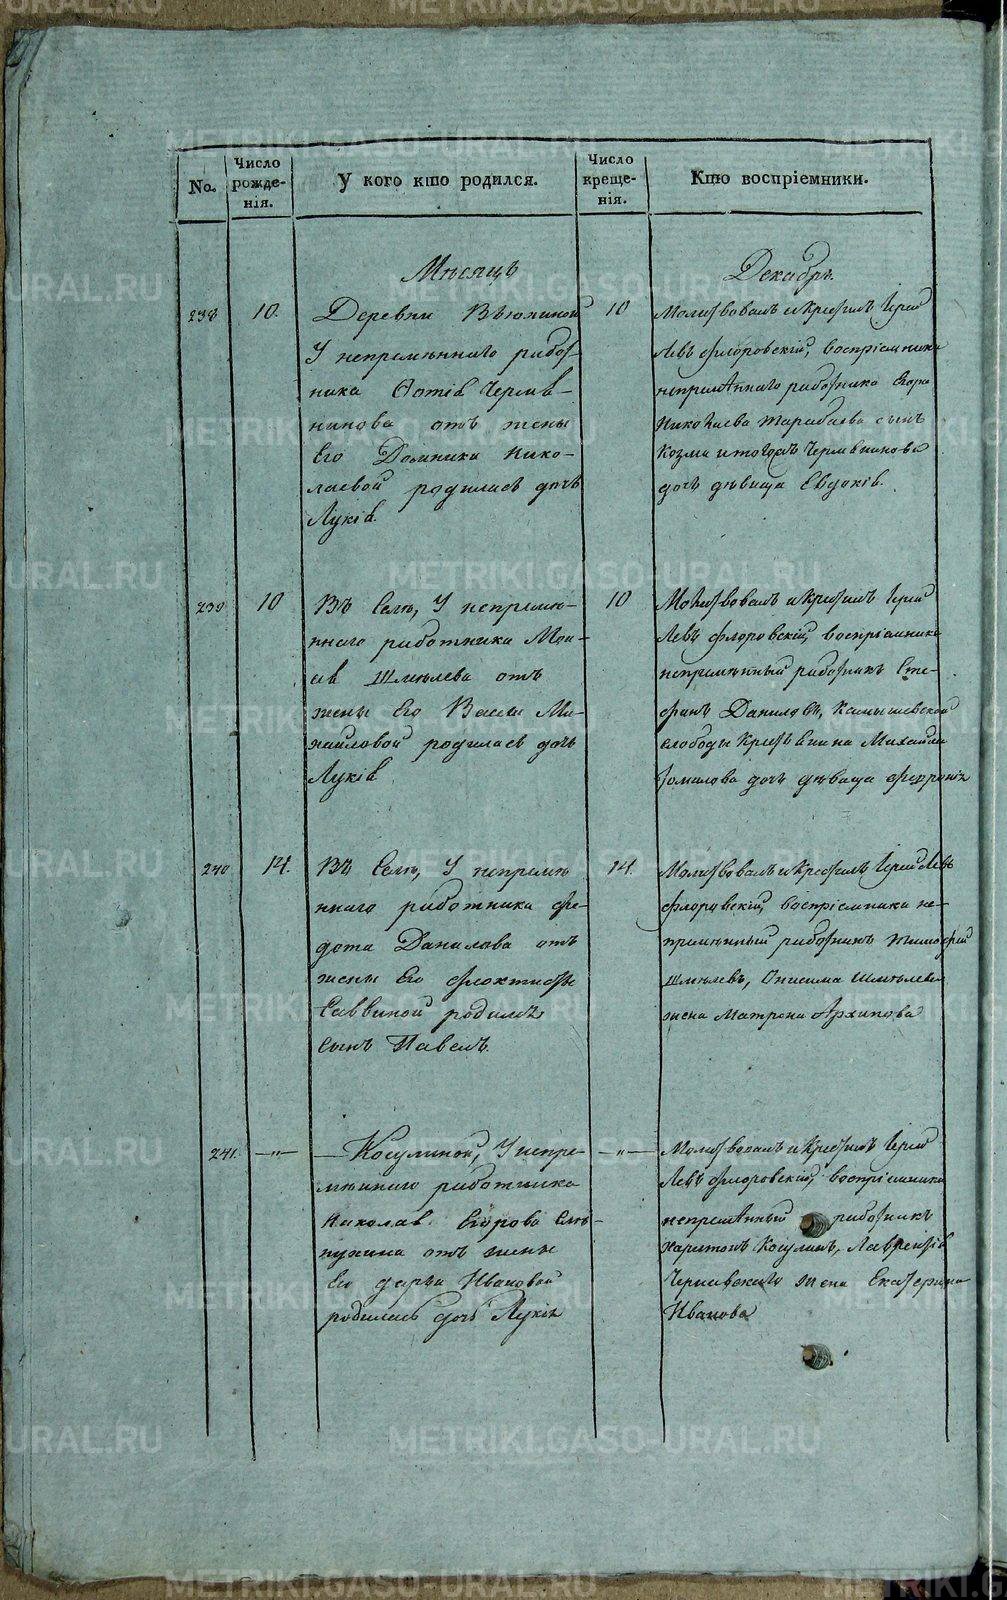 No.
Число рожде-нія.
У кого кто родился.
Число креще-нія.
Кто воспріемники.
Мѣсяцъ
Декабрь.
238
10.
Деревни Вьюхиной
У непремѣннаго работ-
ника Фотія Черпав-
нинова отъ жены
Его Домники Нико-
лаевой родилась дочь
Лукія.
10
Молитвовалъ и Крестилъ Іерей
Левъ Флоровскій, воспріемники
непремѣннаго работника Егора
Николаева Тарабаева сынъ
Козма и тогожъ
дочь дѣвица Евдокія.
239
10
Въ Селѣ, У непремѣ-
ннаго работника Мои-
сія Шмелева отъ
жены Его Вассы Ми-
хайловой родилась дочь
Лукія
10
Молитвовалъ и Крестилъ Іерей
Левъ Флоровскій, воспріемники
непремѣнный работникъ Сте-
фанъ Даниловъ, Камышевской
слободы Крестьянина Михайла
Томилова дочь дѣвица Феоронія
240
14.
Въ Селѣ, У непремѣ
ннаго работника Фе-
дота Данилова отъ
жены Его Феоктисты
Саввиной родился
сынъ Павелъ.
14.
Молитвовалъ и Крестилъ Іерей Левъ
Флоровскій, воспріемники не-
премѣнный работникъ Тимофей
Шмелевъ, Онисима Шмелева
жена Матрона Архипова
241.
—"—
Косулиной, У непре-
мѣннаго работника
Николая Егорова
отъ жены
Его Дарьи Ивановой
родилась дочь Лукія
—"—
Молитвовалъ и Крестилъ Іерей
Левъ Флоровскій, воспріемники
непремѣнный работникъ
Харитонъ Косулинъ, Лаврентія
Чернавскаго жена Екатерина
Иванова
METRIKI.GASO-URAL.RU